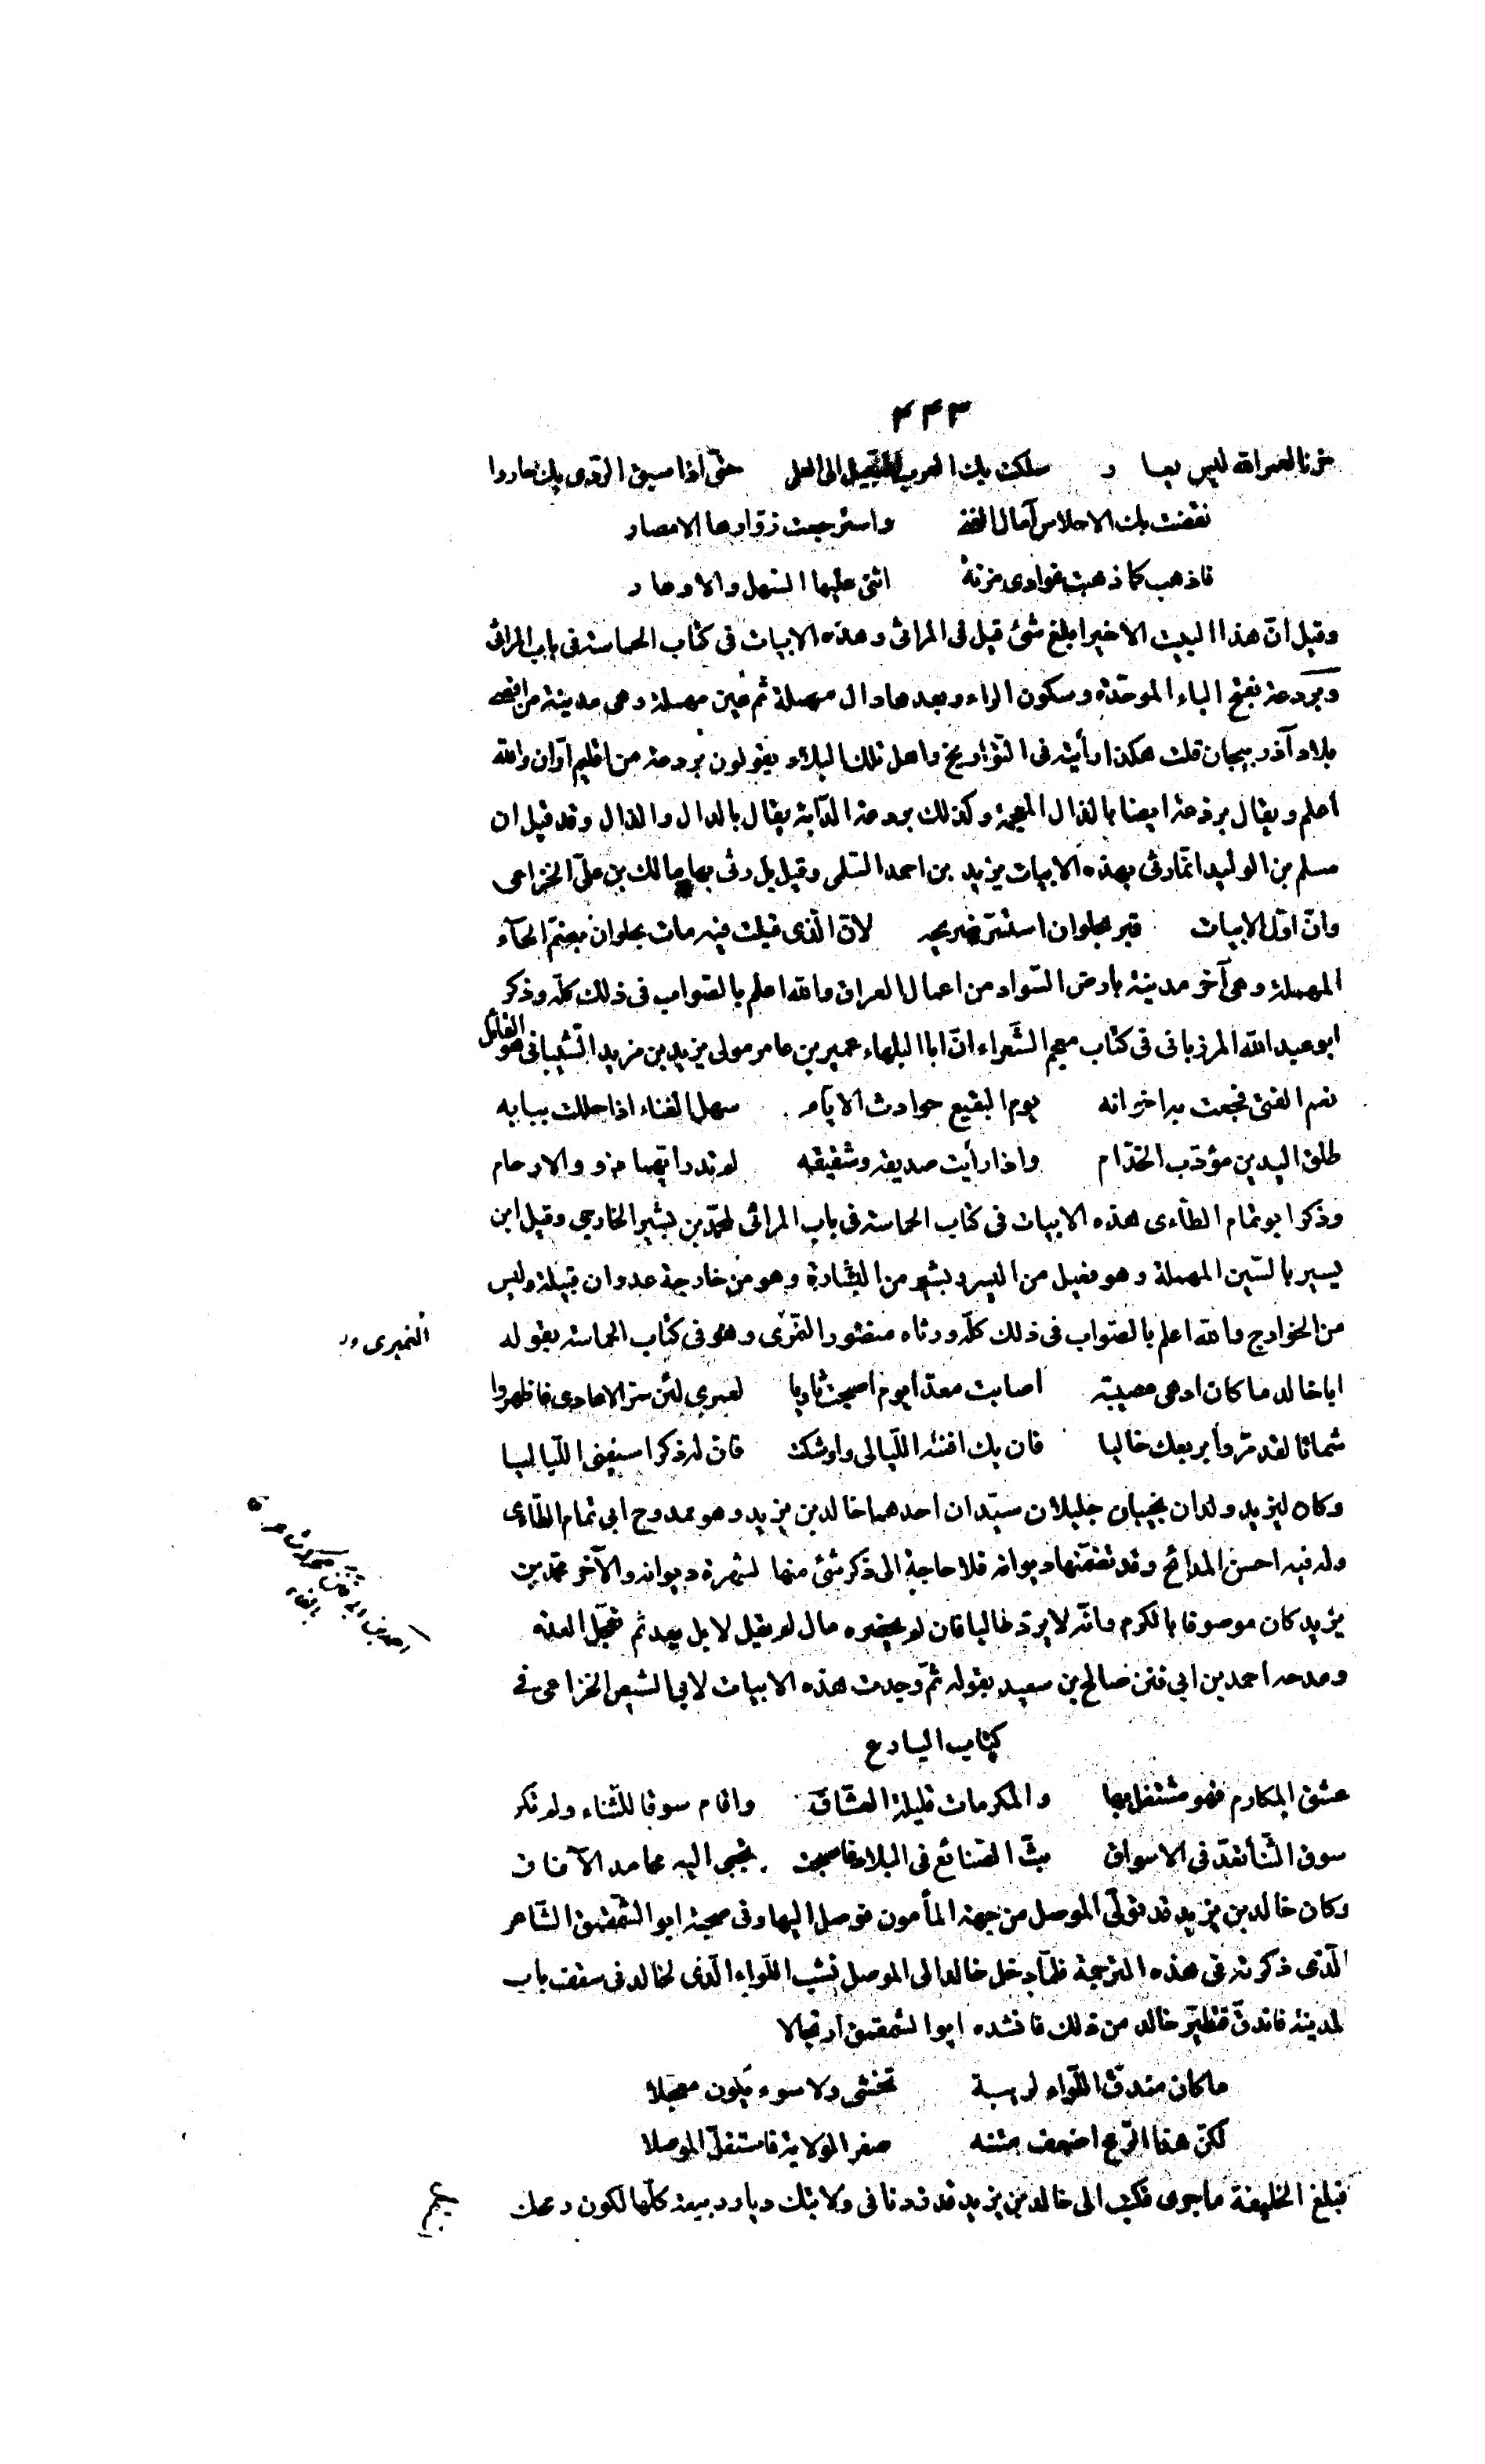 ٤٤٣
حزنا لعمر الله ليس يعار سلكت بك العرب السبيل الى العلى حتى اذا سبق الردى بك حاروا
نفضت بك الاحلاس آمال الغنى واسترجعت زوّارها الامصار
فاذهب كما ذهبت غوادى مزنة اثنى عليها السهل والاوعار
وقيل انّ هذا البيت الاخير ابلغ شئ قيل فى المراثى وهذه الابيات فى كتاب الحماسة فى باب المراثى
وبردعة بفتح الباء الموحّدة وسكون الراء وبعدها دال مهملة ثم عين مهملة وهى مدينة من اقصى
بلاد آذربيجان قلت هكذا رأيته فى التّواريخ واهل تلك البلاد يقولون بردعة من اقليم ارّان والله
اعلم ويقال برذعة ايضا بالذال المعجمة وكذلك بردعة الدّابة يقال بالدال والذال وقد قيل ان
مسلم بن الوليد انّما رثى بهذه الابيات يزيد بن احمد السّلمى وقيل بل رثى بها مالك بن علىّ الخزاعى
وانّ اوّل الابيات قبر بحلوان استسرّ ضريحه لانّ الّذى قيلت فيه مات بحلوان بضمّ الحآء
المهملة وهى آخر مدينة بارض السّواد من اعمال العراق والله اعلم بالصّواب فى ذلك كلّه وذكر
ابو عبد الله المرزبانى فى كتاب معجم الشّعراء انّ ابا البلهاء عمير بن عامر مولى يزيد بن مزيد الشّيبانى هو القائل
نعم الفتى فجعت به اخوانه يوم البقيع حوادث الايّام سهل الفناء اذا حللت ببابه
طلق اليدين مؤدّب الخدّام واذا رأيت صديقه وشقيقه لم تدر ايّهما ذوو الارحام
وذكر ابو تمام الطآءى هذه الابيات فى كتاب الحماسة فى باب المراثى لمحمّد بن بشير الخارجى وقيل ابن
يسير بالسّين المهملة وهو فعيل من اليسر وبشير من البشارة وهو من خارجة عدوان قبيلة وليس
من الخوارج والله اعلم بالصّواب فى ذلك كلّه ورثاه منصور النمّرى وهو فى كتاب الحماسة بقوله
النميرى
ابا خالد ما كان ادهى مصيبة اصابت معدّا يوم اصبحت ثاويا لعمرى لئن سرّ الاعادى فاظهروا
شماتا لقد مرّوا بربعك خاليا فان يك افنته اللّيالى واوشكت فانّ له ذكرا سيفنى اللّياليا
وكان ليزيد ولدان نجيبان جليلان سيّدان احدهما خالد بن يزيد وهو ممدوح ابى تمام الطّاءى
وله فيه احسن المدائح وقد تضمّنها ديوانه فلا حاجة الى ذكر شئ منها لشهرة ديوانه والآخر محمّد بن
يزيد كان موصوفا بالكرم وانّه لا يردّ طالبا فان لم يحضره مال لم يقل لا بل يعد ثم يعجّل العدة
ومدحه احمد بن ابى فنن صالح بن سعيد بقوله ثمّ وجدت هذه الابيات لابى الشيص الخزاعى فى
كتاب البارع
عشق المكارم فهو مشتغل بها والمكرمات قليلة العشّاق واقام سوقا للثّناء ولم تكن
سوق الثّنا تعدّ فى الاسواق بثّ الصّنائع فى البلاد فاصبحت يجبى اليه محامد الآفاق
وكان خالد بن يزيد قد تولّى الموصل من جهة المأمون فوصل اليها وفى صحبته ابو الشّمقمق الشّاعر
الّذى ذكرته فى هذه الترجمة فلمّا دخل خالد الى الموصل نشب اللّواء الّذى لخالد فى سقف باب
لمدينة فاندقّ فتطيّر خالد من ذلك فانشده ابو الشمقمق ارتجالا
ما كان مندقّ اللّواء لريبة تخشى ولا سوء يكون معجّلا
لكنّ هذا الرّمح اضعف متنه صغر الولاية فاستقلّ الموصلا
فبلغ الخليفة ما جرى فكتب الى خالد بن يزيد قد زدنا فى ولايتك ديار ربيعة كلّها لكون رمحك